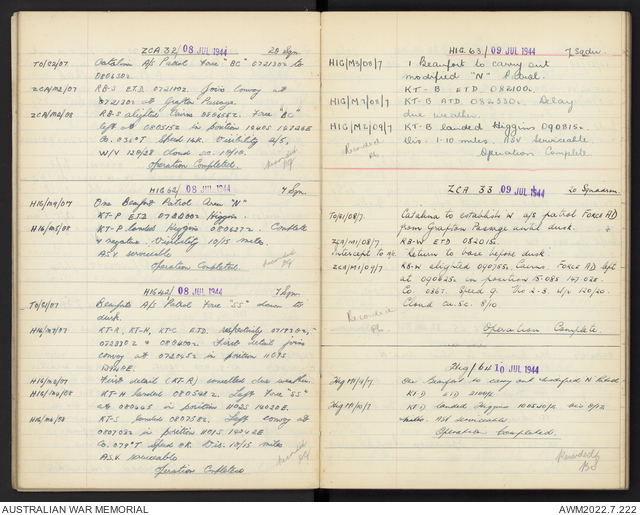 ZCA 32/ 08 JUL 1944 20 Sqn.
TO/52/07 Catalina A/S Patrol Force "BC" 072130z to
080630z.
ZCA/M2/07 RB-S ETD. 072110z. Join Convoy at
072130z at Grafton Passage.
ZCA/M2/08 RB-S alighted Cairns 080655z. Force "BC"
left at 080515z in position
Co. 031°T Speed 14k. Visibility 4/5,
W/V 120/28 cloud
Operation Completed.
Recorded
HIG 62/ 08 JUL 1944 7 Sqn
HIG/M9/07 One Beaufort Patrol Area "N"
KT-P ETD 072000z Higgins.
HIG/M5/08 KT-P landed Higgins 080627z. Complete
& negative. Visibility 10/15 miles.
ASV serviceable
Operation Completed.
Recorded
HIG 08 JUL 1944 7 Sqn
Beauforts A/S Patrol Force "SS" dawn to
dusk.
HIG/M7/07 KT-R, KT-H, KT-C ETD. respectively
& 080400z. First detail joins
convoy at 072045z in position
HIG/M2/07 First detail (KT-R) cancelled due weather.
HIG/M4/08 KT-H landed Left Force "SS"
at 080445 in position 1102S 14202E.
HIG/M6/08 landed 080758z. Left convoy at
080703z in position
Co. 079°T Speed 8k. Vis. 10/15 miles
ASV serviceable
Operation Completed
Recorded
HIG. 63/ 09 JUL 1944 7 Sqdn.
HIG/M3/08/7 1 Beaufort to carry out
modified "N" Patrol.
KT-B ETD 082100z.
HIG/M7/08/7 KT-B ATD. 082330z. Delay
due weather.
HIG/M2/09/7 KT-B landed Higgins 090815z.
Vis. 1-10 miles. ASV Serviceable.
Operation Complete
Recorded
ZCA 33 09 JUL 1944 20 Squadron.
TO/61/08/7. Catalina to establish W a/s patrol FORCE AD
from Grafton Passage until dusk.
ZCA/M1/08/7 RB-W ETD 082015z
Intercept to a/c "Return to base before dusk"
ZCA/M1/09/7 RB-W alighted 090755z, Cairns. FORCE AD left
at 090625z in position 15.08S 147.02E
Co 036T. Speed 9. Vis 2-3. W/V 120/20.
Cloud cu.sc. 8/10.
Recorded
Operation Complete.
Hig/64 10 JUL 1944
Hig M/9/7 One Beaufort to carry out modified N Patrol.
KT-D ETD 2100/z
Hig M/10/7 KT-D landed Higgins
miles. ASV serviceable
Operation Completed.
Recorded
AUSTRALIAN WAR MEMORIAL
AWM2022.7.222